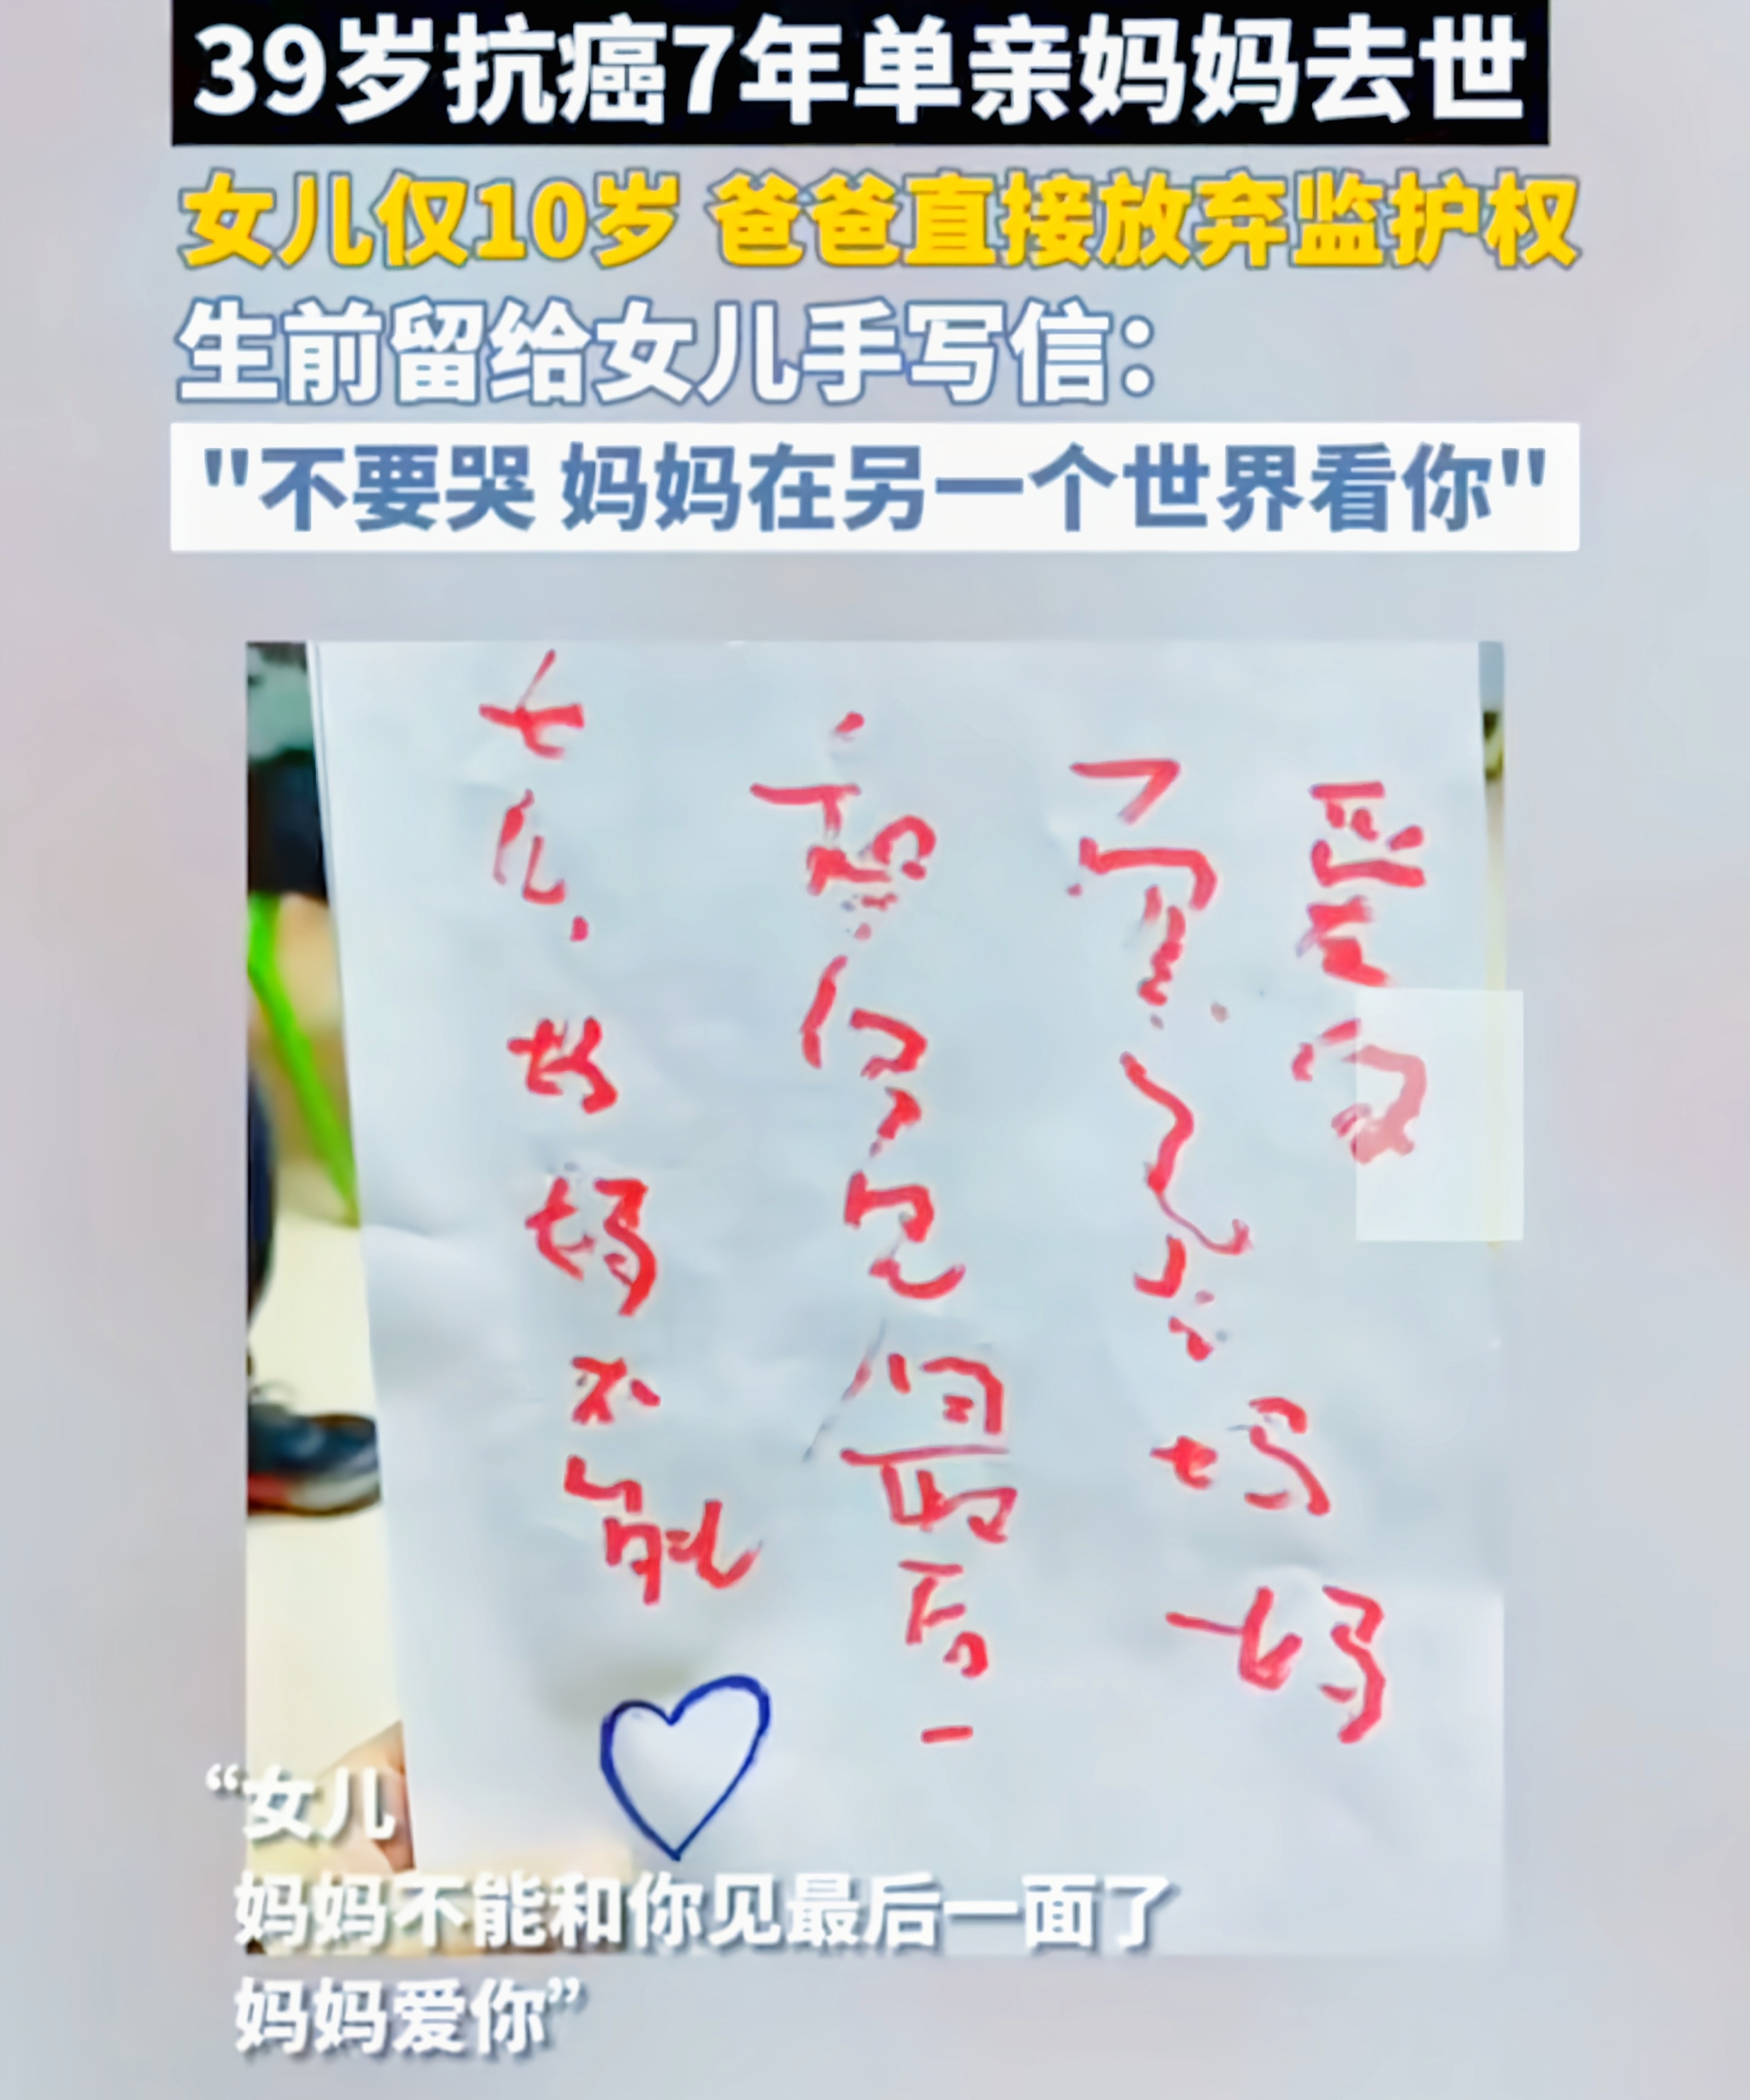 39岁抗癌7年单亲妈妈去世
女儿仅10岁 爸爸直接放弃监护权
生前留给女儿手写信：
"不要哭 妈妈在另一个世界看你"
女儿，妈妈不能
和你见最后一
面了 妈妈
爱你
“女儿
妈妈不能和你见最后一面了
妈妈爱你”